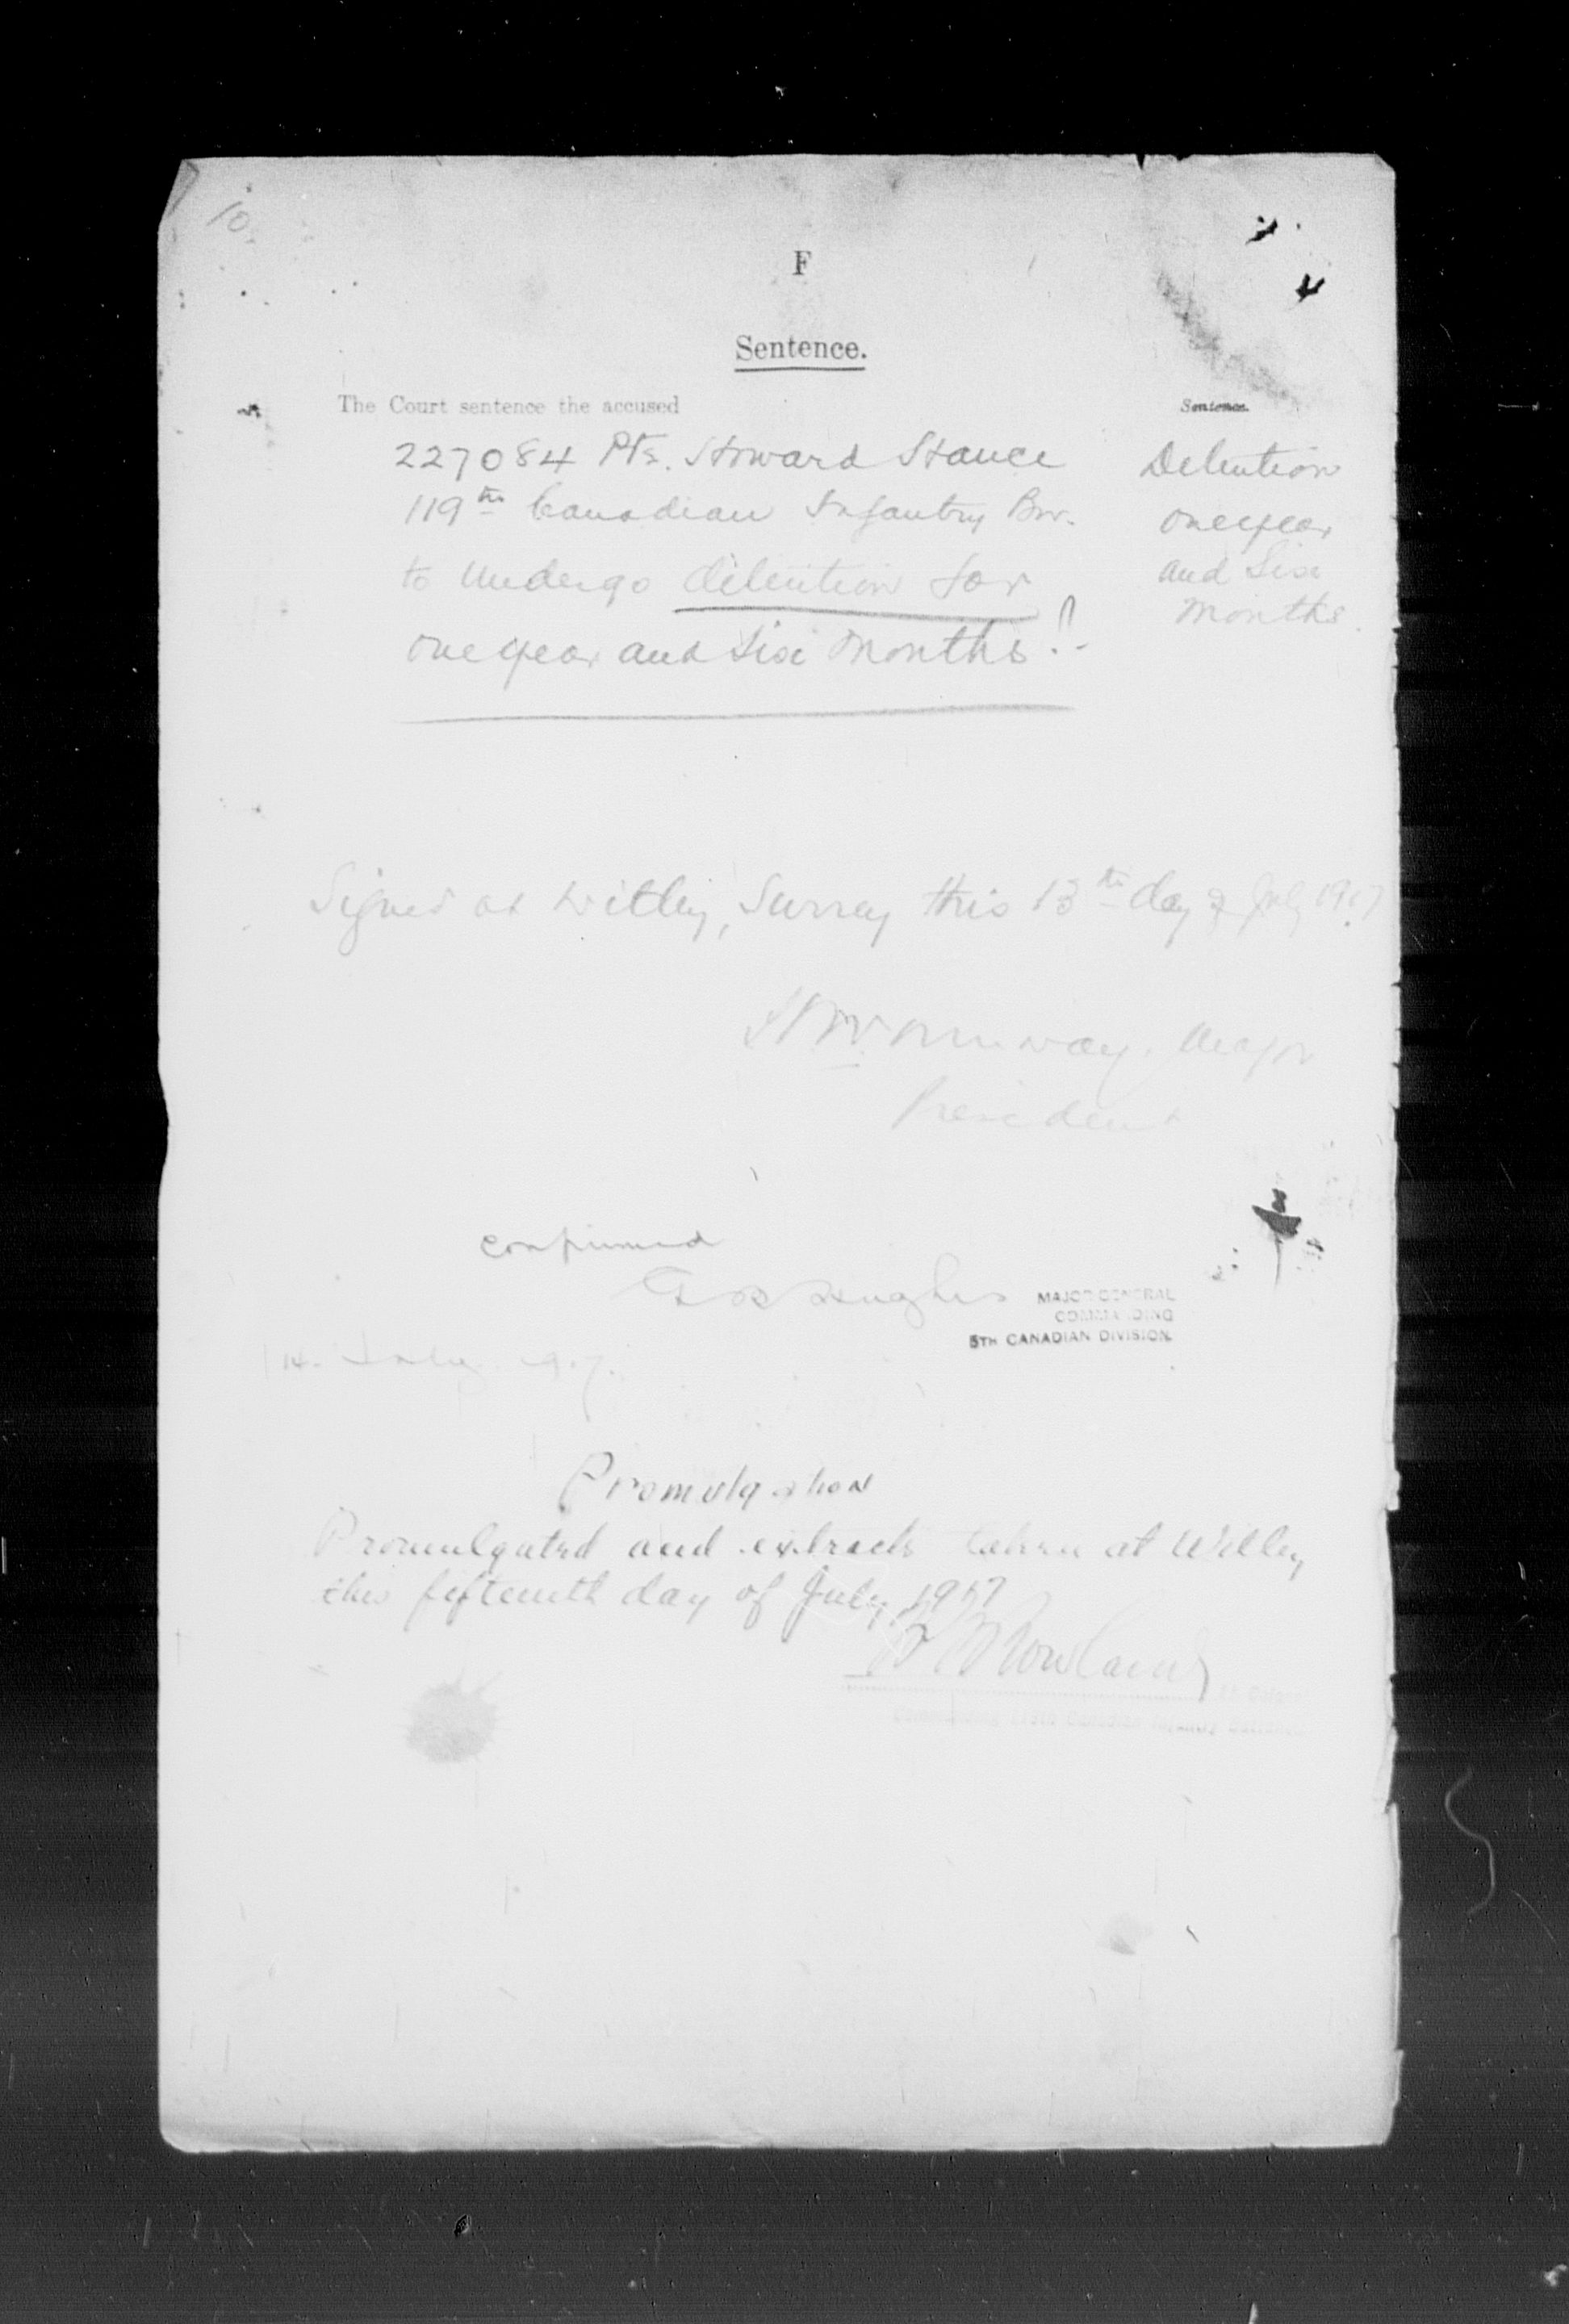 10
F
Sentence.
The Court sentence the accused
Sentence.
227084 Pte. Howard Stance
119th Canadian Infantry Bn.
to undergo detention for
one year and six months!-
Detention
one year
and six
months.
Signed at Witley, Surrey this 13th day of July 1917.
Major
President
confirmed
Hughes
MAJOR GENERAL
COMMANDING
5TH CANADIAN DIVISION.
14. July 1917.
Promulgation
Promulgated and extracts taken at Witley
this fifteenth day of July 1917
Rowland
Lt Colonel
Commanding 119th Canadian Infantry Battalion